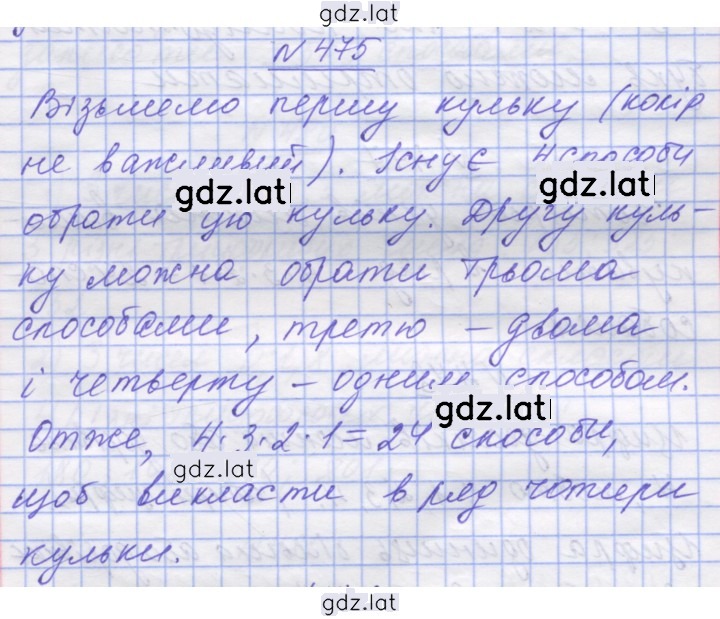 gdz.lat
N 475
Візьмемо першу кульку (колір
не важливий). Існує 4 способи
gdz.lat
обрати цю кульку. Другу куль-
ку можна обрати трьома
способами, третю - двома
і четверту - одним способом.
gdz.lat
Отже, 4·3·2·1=24 способи,
gdz.lat
щоб викласти в ряд чотири
кульки.
gdz.lat